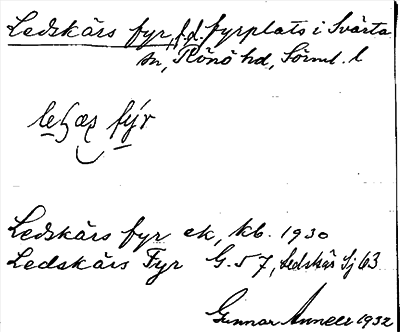 Ledskärs fyr, f.d. fyrplats i Svärta
sn, Rönö hd, Sörml. l
fýr
Ledskärs fyr ek, kb. 1930
Ledskärs Fyr G. 57, Ledskär Sj 63
Gunnar Annell 1932